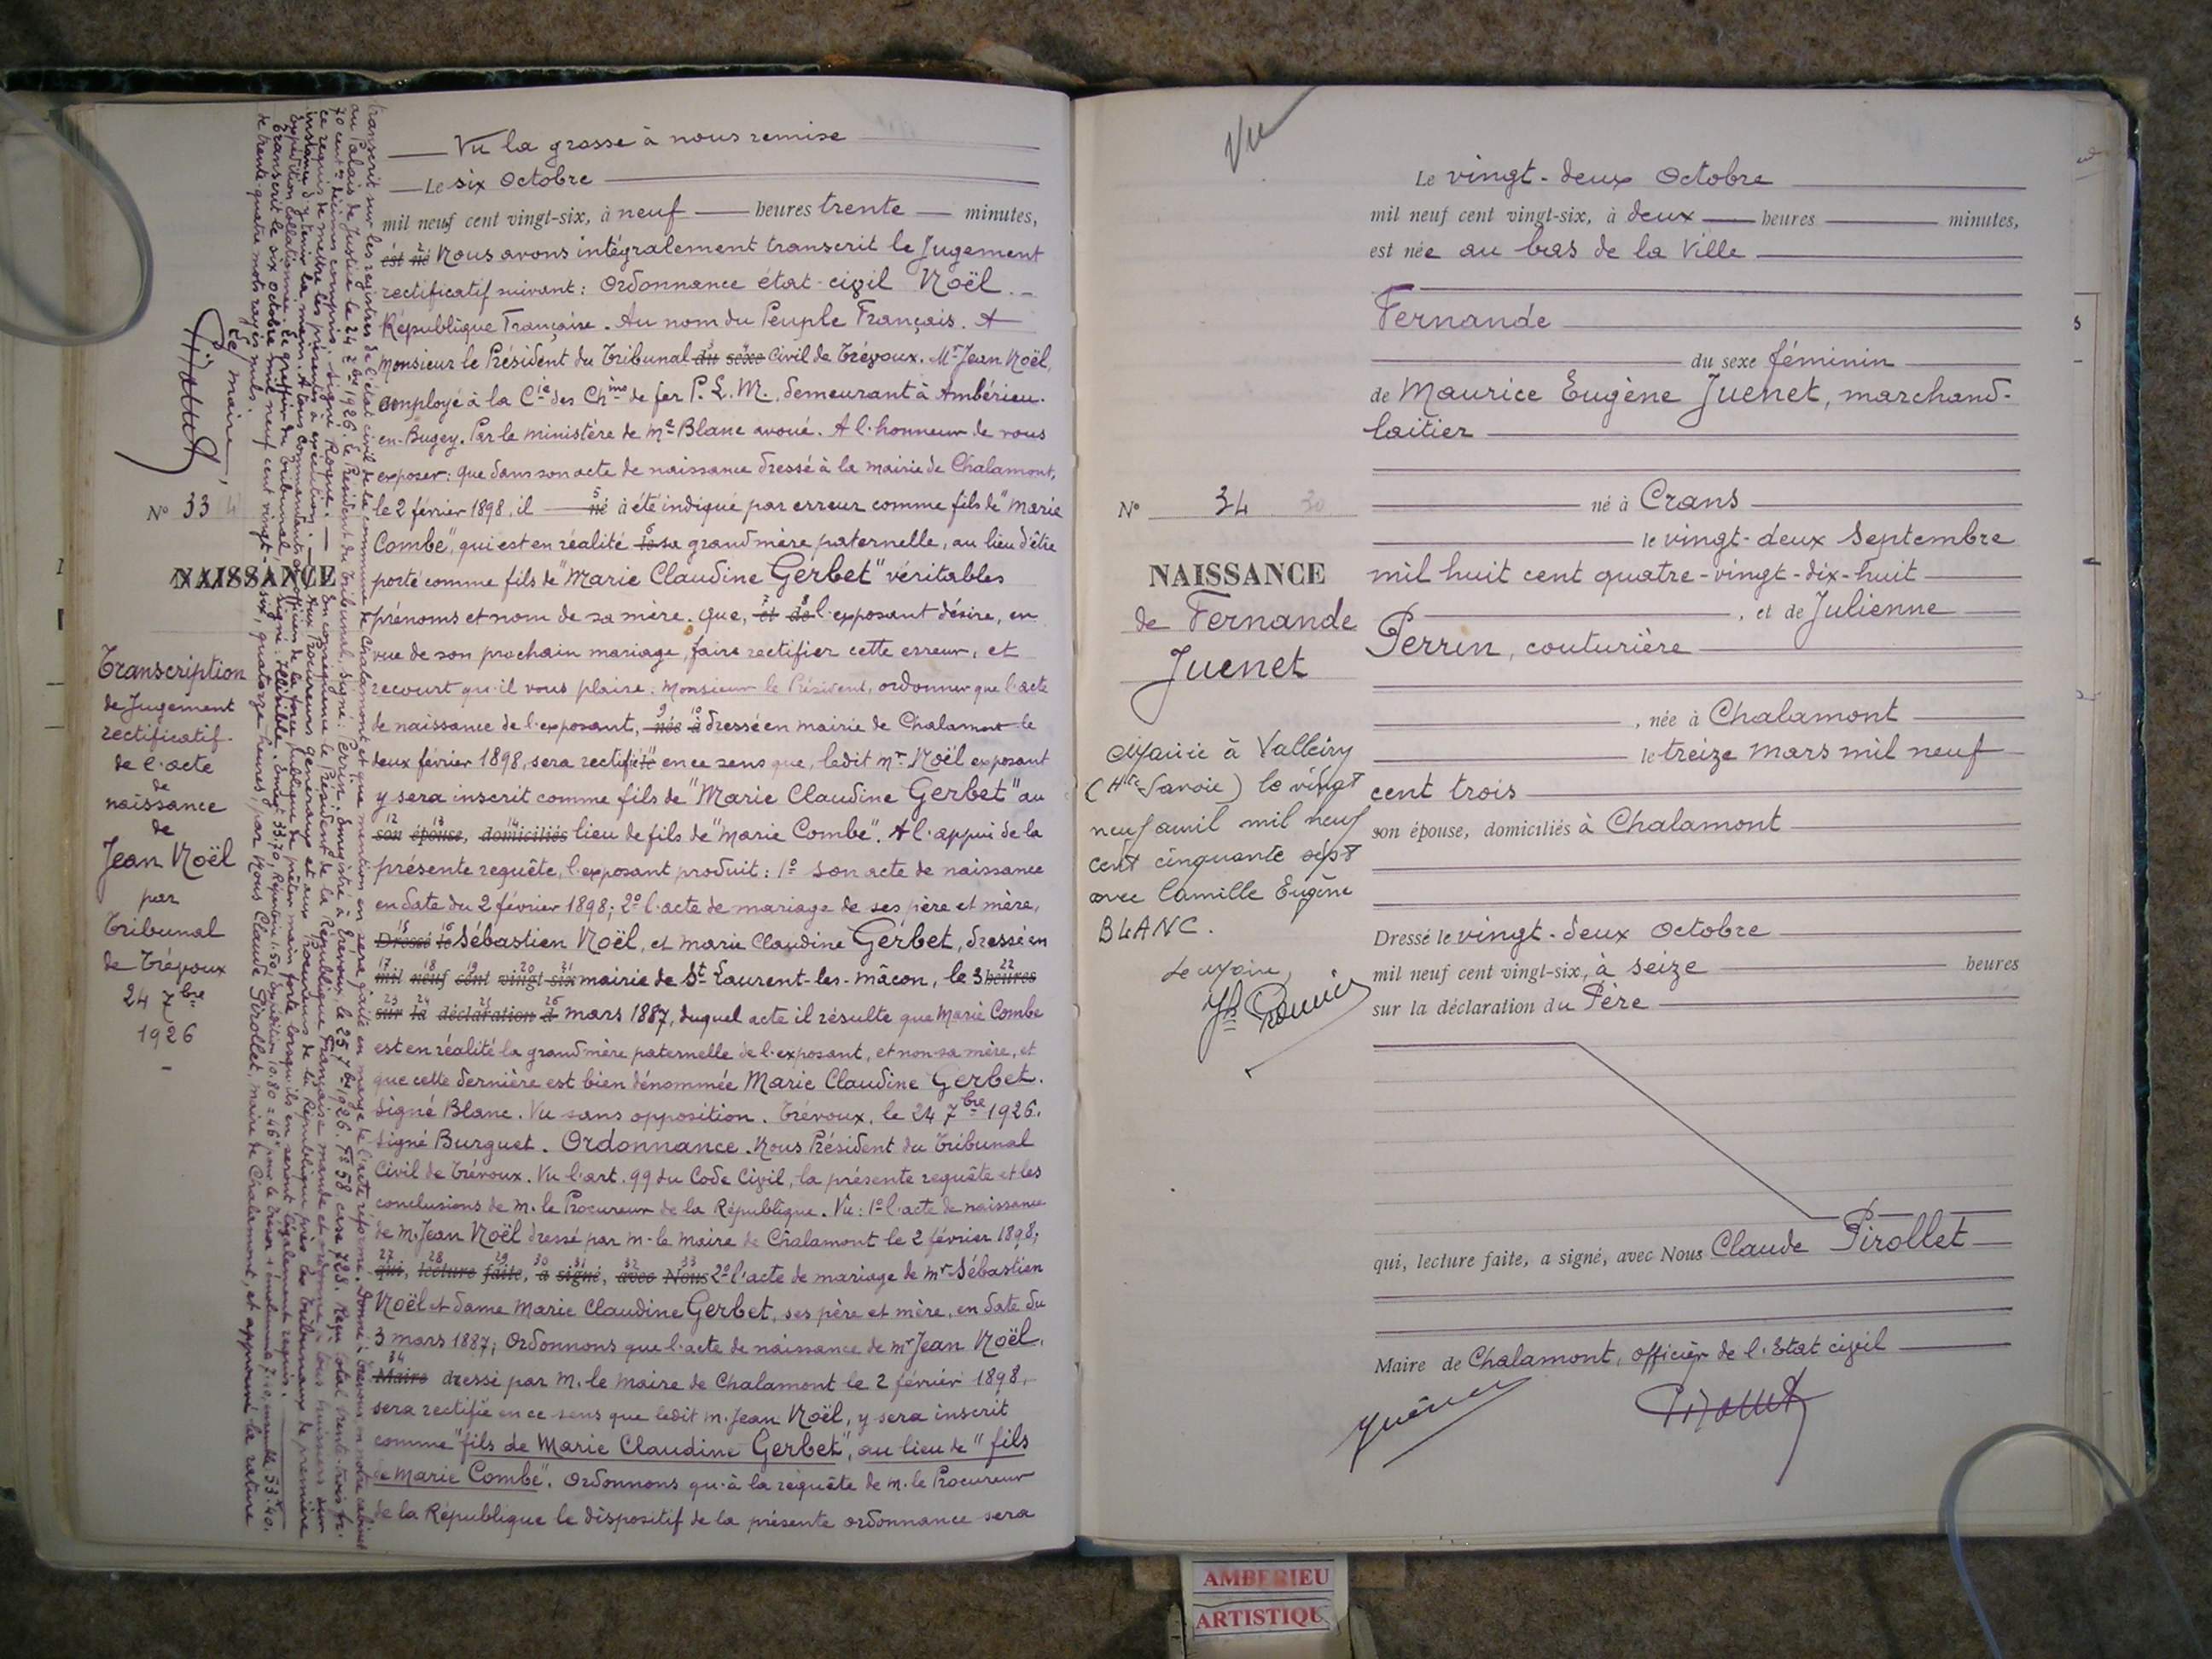 Vu la grosse à nous remise
Le six Octobre
mil neuf cent vingt-six, à neuf heures trente minutes,
est né Nous avons intégralement transcrit le Jugement
rectificatif suivant : Ordonnance état-civil Noël.
République Française. Au nom du Peuple Français. A
Monsieur le Président du Tribunal du sexe Civil de Trévoux. Mr Jean Noël,
employé à la Cie des Chins de fer P. L. M., demeurant à Ambérieu-
en-Bugey. Par le ministère de Me Blanc avoué. A l'honneur de vous
exposer : que dans son acte de naissance dressé à la mairie de Chalamont,
le 2 février 1898, il né à été indiqué par erreur comme fils de "Marie
Combe", qui est en réalité le sa grand'mère paternelle, au lieu d'être
porté comme fils de "Marie Claudine Gerbet" véritables
prénoms et nom de sa mère. Que, et de l'exposant désire, en
vue de son prochain mariage, faire rectifier cette erreur, et
recourt qu'il vous plaise, Monsieur le Président, ordonner que l'acte
de naissance de l'exposant, née à dressé en mairie de Chalamont le
deux février 1898, sera rectifié le en ce sens que, ledit Mr Noël exposant
y sera inscrit comme fils de "Marie Claudine Gerbet" au
son épouse, domiciliés lieu de fils de "Marie Combe". A l'appui de la
présente requête, l'exposant produit : 1º Son acte de naissance
en date du 2 février 1898; 2º l'acte de mariage de ses père et mère,
Dressé le Sébastien Noël, et Marie Claudine Gerbet, dressé en
mil neuf cent vingt-six mairie de St Laurent-les-Mâcon, le 3 heures
sur la déclaration d mars 1887, duquel acte il résulte que Marie Combe
est en réalité la grand'mère paternelle de l'exposant, et non sa mère, et
que cette dernière est bien dénommée Marie Claudine Gerbet.
Signé Blanc. Vu sans opposition. Trévoux, le 24 7bre 1926.
Signé Burguet. Ordonnance. Nous Président du Tribunal
Civil de Trévoux. Vu l'art. 99 du Code Civil, la présente requête et les
conclusions de M. le Procureur de la République. Vu : 1º l'acte de naissance
de M. Jean Noël dressé par M. le Maire de Chalamont le 2 février 1898;
qui, lecture faite, a signé, avec Nous 2º l'acte de mariage de Mr Sébastien
Noël et dame Marie Claudine Gerbet, ses père et mère, en date du
3 mars 1887; Ordonnons que l'acte de naissance de Mr Jean Noël,
Maire dressé par M. le Maire de Chalamont le 2 février 1898,
sera rectifié en ce sens que ledit M. Jean Noël, y sera inscrit
comme "fils de Marie Claudine Gerbet", au lieu de "fils
de Marie Combe". Ordonnons qu'à la requête de M. le Procureur
de la République le dispositif de la présente ordonnance sera
transcrit sur les registres de l'état civil de la commune de Chalamont et que mention en sera faite en marge de l'acte réformé. Donné à Trévoux en notre cabinet
au Palais de Justice le 24 7bre 1926. Le Président du Tribunal, signé : Perrin. Enregistré à Trévoux, le 25 7bre 1926. Fº 58 case 728. Reçu total trente-trois fr.
70 cent. décimes compris, signé Roque. En conséquence le Président de la République Française mande et ordonne à tous huissiers sur
ce requis de mettre les présentes à exécution. Aux Procureurs Généraux et aux Procureurs de la République près les Tribunaux de première
instance d'y tenir la main. A tous commandants et officiers de la force publique de prêter main forte lorsqu'ils en seront légalement requis.
Expédition collationnée. Le greffier du tribunal signé : Illisible.
transcrit le six octobre mil neuf cent vingt-six, quatorze heures, par Nous Claude Pirollet, maire de Chalamont, et approuvé la rature
de trente-quatre mots rayés nuls.
Le maire,
Pirollet
Nº 33
NAISSANCE
Transcription
de Jugement
rectificatif
de l'acte
de
naissance
de
Jean Noël
par
Tribunal
de Trévoux
24 7bre
1926
Vu
Nº 34 30
NAISSANCE
de Fernande
Juenet
Mariée à Valleiry
(Hte Savoie) le vingt
neuf avril mil neuf
cent cinquante sept
avec Camille Eugène
BLANC.
Le Maire,
Le vingt-deux Octobre
mil neuf cent vingt-six, à deux heures minutes,
est née au bas de la Ville
Fernande
du sexe féminin
de Maurice Eugène Juenet, marchand-
laitier
né à Crans
le vingt-deux Septembre
mil huit cent quatre-vingt-dix-huit
, et de Julienne
Perrin, couturière
, née à Chalamont
le treize mars mil neuf
cent trois
son épouse, domiciliés à Chalamont
Dressé le vingt-deux Octobre
mil neuf cent vingt-six, à seize heures
sur la déclaration du Père
qui, lecture faite, a signé, avec Nous Claude Pirollet
Maire de Chalamont, officier de l'Etat civil
Juenet
Pirollet
AMBERIEU
ARTISTIQU